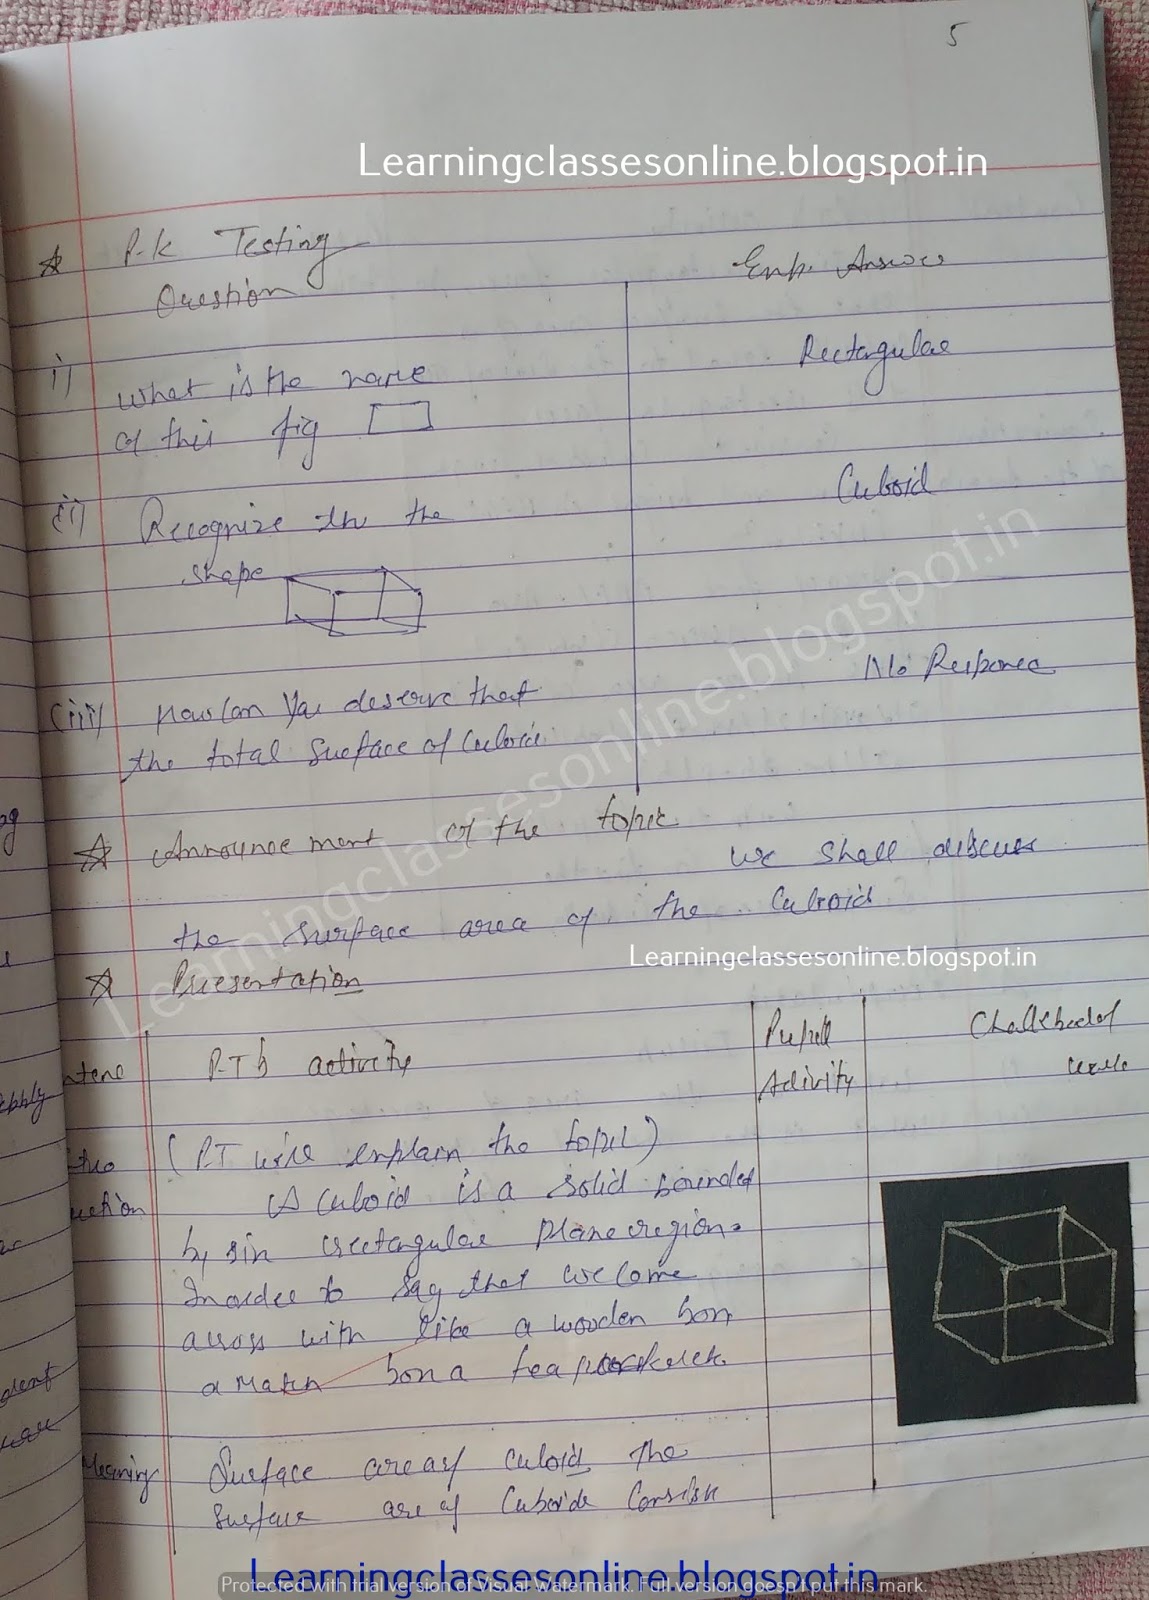 5
Learningclassesonline.blogspot.in
P.K Testing
Question
Exp. Answer
i) what is the name
of this fig
Rectangular
(ii) Recognize the the
shape
Cuboid
(iii) How can you deserve that
the total Surface of Cuboid
No Response
Announcement of the topic
we shall discuss
the surface area of the Cuboid
Learningclassesonline.blogspot.in
Learningclassesonline.blogspot.in
Presentation
P.T's activity
Pupil
Activity
Chalkboard
work
(P.T will explain the topic)
A Cuboid is a solid bounded
by six rectangular plane region.
In order to say that we come
across with like a wooden box
a match box a tea
Meaning
Surface area of cuboid. The
surface are of Cuboide Consist
Learningclassesonline.blogspot.in
Protected with trial version of Visual Watermark. Full version doesn't put this mark.